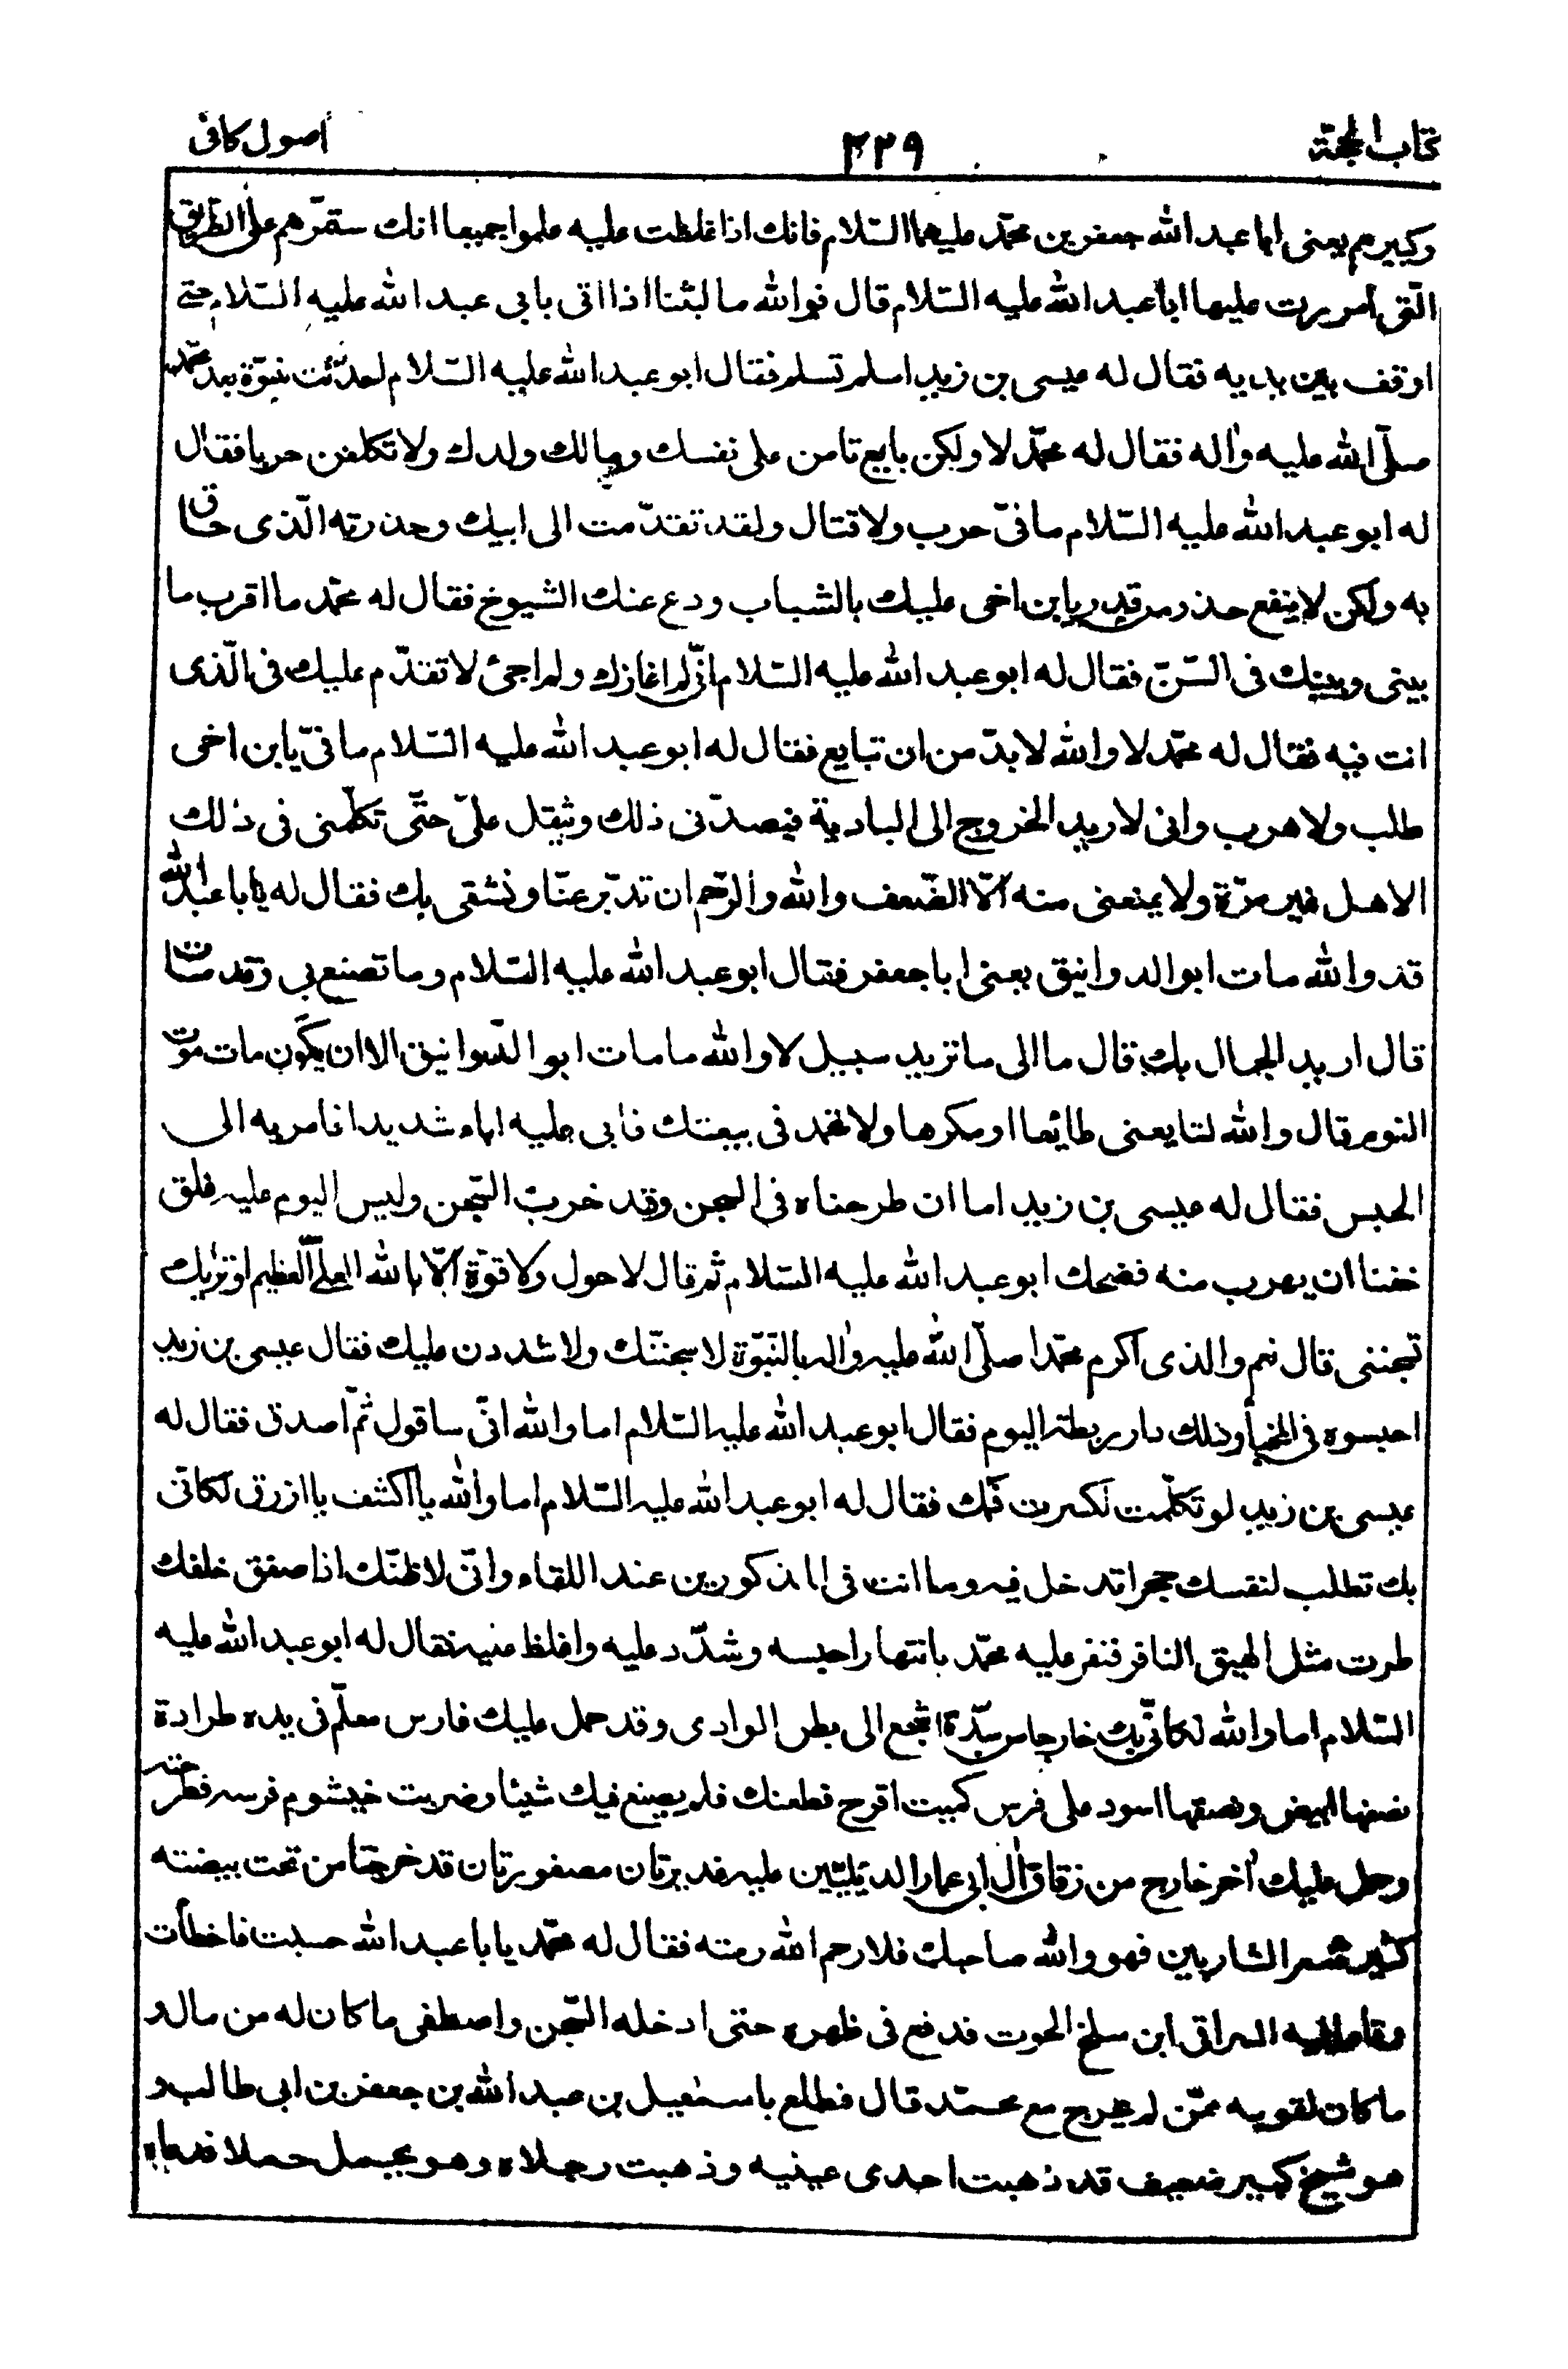 كتاب الحجّة ٣٢٩ اصول كافى
وكبيرهم يعنى ابا عبد الله جعفر بن محمّد عليهما السّلام فانك اذا غلظت عليه علموا جميعا انك ستمّرهم على الطريق
الّتى امررت عليها ابا عبد الله عليه السّلام قال فوالله ما لبثنا اذا اتى بابى عبد الله عليه السّلام حتى
اوقف بين يديه فقال له عيسى بن زيد اسلم تسلم فقال ابو عبد الله عليه السّلام احدثت نبوّة بعد محمّد
صلّى الله عليه واٰله فقال له محمّد لا ولكن بايع تامن على نفسك ومالك وولدك ولا تكلفن حربا فقال
له ابو عبد الله عليه السّلام ما فىّ حرب ولا قتال ولقد تقدّمت الى ابيك وحذرته الّذى حاق
به ولكن لا ينفع حذر من قدر يا بن اخى عليك بالشباب ودع عنك الشيوخ فقال له محمّد ما اقرب ما
بينى وبينك فى السّنّ فقال له ابو عبد الله عليه السّلام انّى لم اعازك ولم اجئ لا تقدّم عليك فى الّذى
انت فيه فقال له محمّد لا والله لا بدّ من ان تبايع فقال له ابو عبد الله عليه السّلام ما فىّ يا بن اخى
طلب ولا هرب وانى لاريد الخروج الى البادية فيصدّنى ذلك ويثقل علىّ حتّى تكلّمنى فى ذلك
الاهل غير مرّة ولا يمنعنى منه الّا الضّعف والله والرّحم ان تدبر عنّا ونشقى بك فقال له يا با عبد الله
قد والله مات ابو الدوانيق يعنى ابا جعفر فقال ابو عبد الله عليه السّلام وما تصنع بى وقد مات
قال اريد الجمال بك قال ما الى ما تريد سبيل لا والله ما مات ابو الدّوانيق الا ان يكون مات موت
النوم قال والله لتبايعنى طائعا او مكرها ولا تحمد فى بيعتك فابى عليه اباء شديدا فامر به الى
الحبس فقال له عيسى بن زيد اما ان طرحناه فى السجن وقد خرب السّجن وليس اليوم عليه غلق
خفنا ان يهرب منه فضحك ابو عبد الله عليه السّلام ثم قال لا حول ولا قوّة الّا بالله العلىّ العظيم او تراك
تسجننى قال نعم والذى اكرم محمّدا صلّى الله عليه واٰله بالنّبوّة لاسجننّك ولاشددن عليك فقال عيسى بن زيد
احبسوه فى المخبأ وذلك دار ريطة اليوم فقال ابو عبد الله عليه السّلام اما والله انّى ساقول ثمّ اصدق فقال له
عيسى بن زيد لو تكلّمت لكسرت فمك فقال له ابو عبد الله عليه السّلام اما والله يا اكشف يا ازرق لكانّى
بك تطلب لنفسك حجرا تدخل فيه وما انت فى المذكورين عند اللقاء وانّى لاظنّك اذا صفق خلفك
طرت مثل الهيق النافر فنفر عليه محمّد بانتهار احبسه وشدّد عليه واغلظ عليه فقال له ابو عبد الله عليه
السّلام اما والله لكانّى بك خارجا من سدّة اشجع الى بطن الوادى وقد حمل عليك فارس معلّم فى يده طرادة
نصفها ابيض ونصفها اسود على فرس كميت اقرح فطعنك فلم يصنع فيك شيئا وضربت خيشوم فرسه فطرحته
وحمل عليك اٰخر خارج من زقاق اٰل ابى عمار الديليّين عليه غديرتان مضفورتان قد خرجتا من تحت بيضته
كثير شعر الشاربين فهو والله صاحبك فلا رحم الله رمته فقال له محمّد يا با عبد الله حسبت فاخطأت
وقام اليه السراقى ابن سلخ الحوت فدفع فى ظهره حتى ادخله السّجن واصطفى ما كان له من مال و
ما كان لقومه ممّن لم يخرج مع محمّد قال فطلع باسمٰعيل بن عبد الله بن جعفر بن ابى طالب و
هو شيخ كبير ضعيف قد ذهبت احدى عينيه وذهبت رجلاه وهو يحمل حملا فدعاه